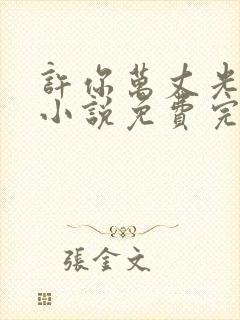 許你萬丈光
小說免費完
張金文